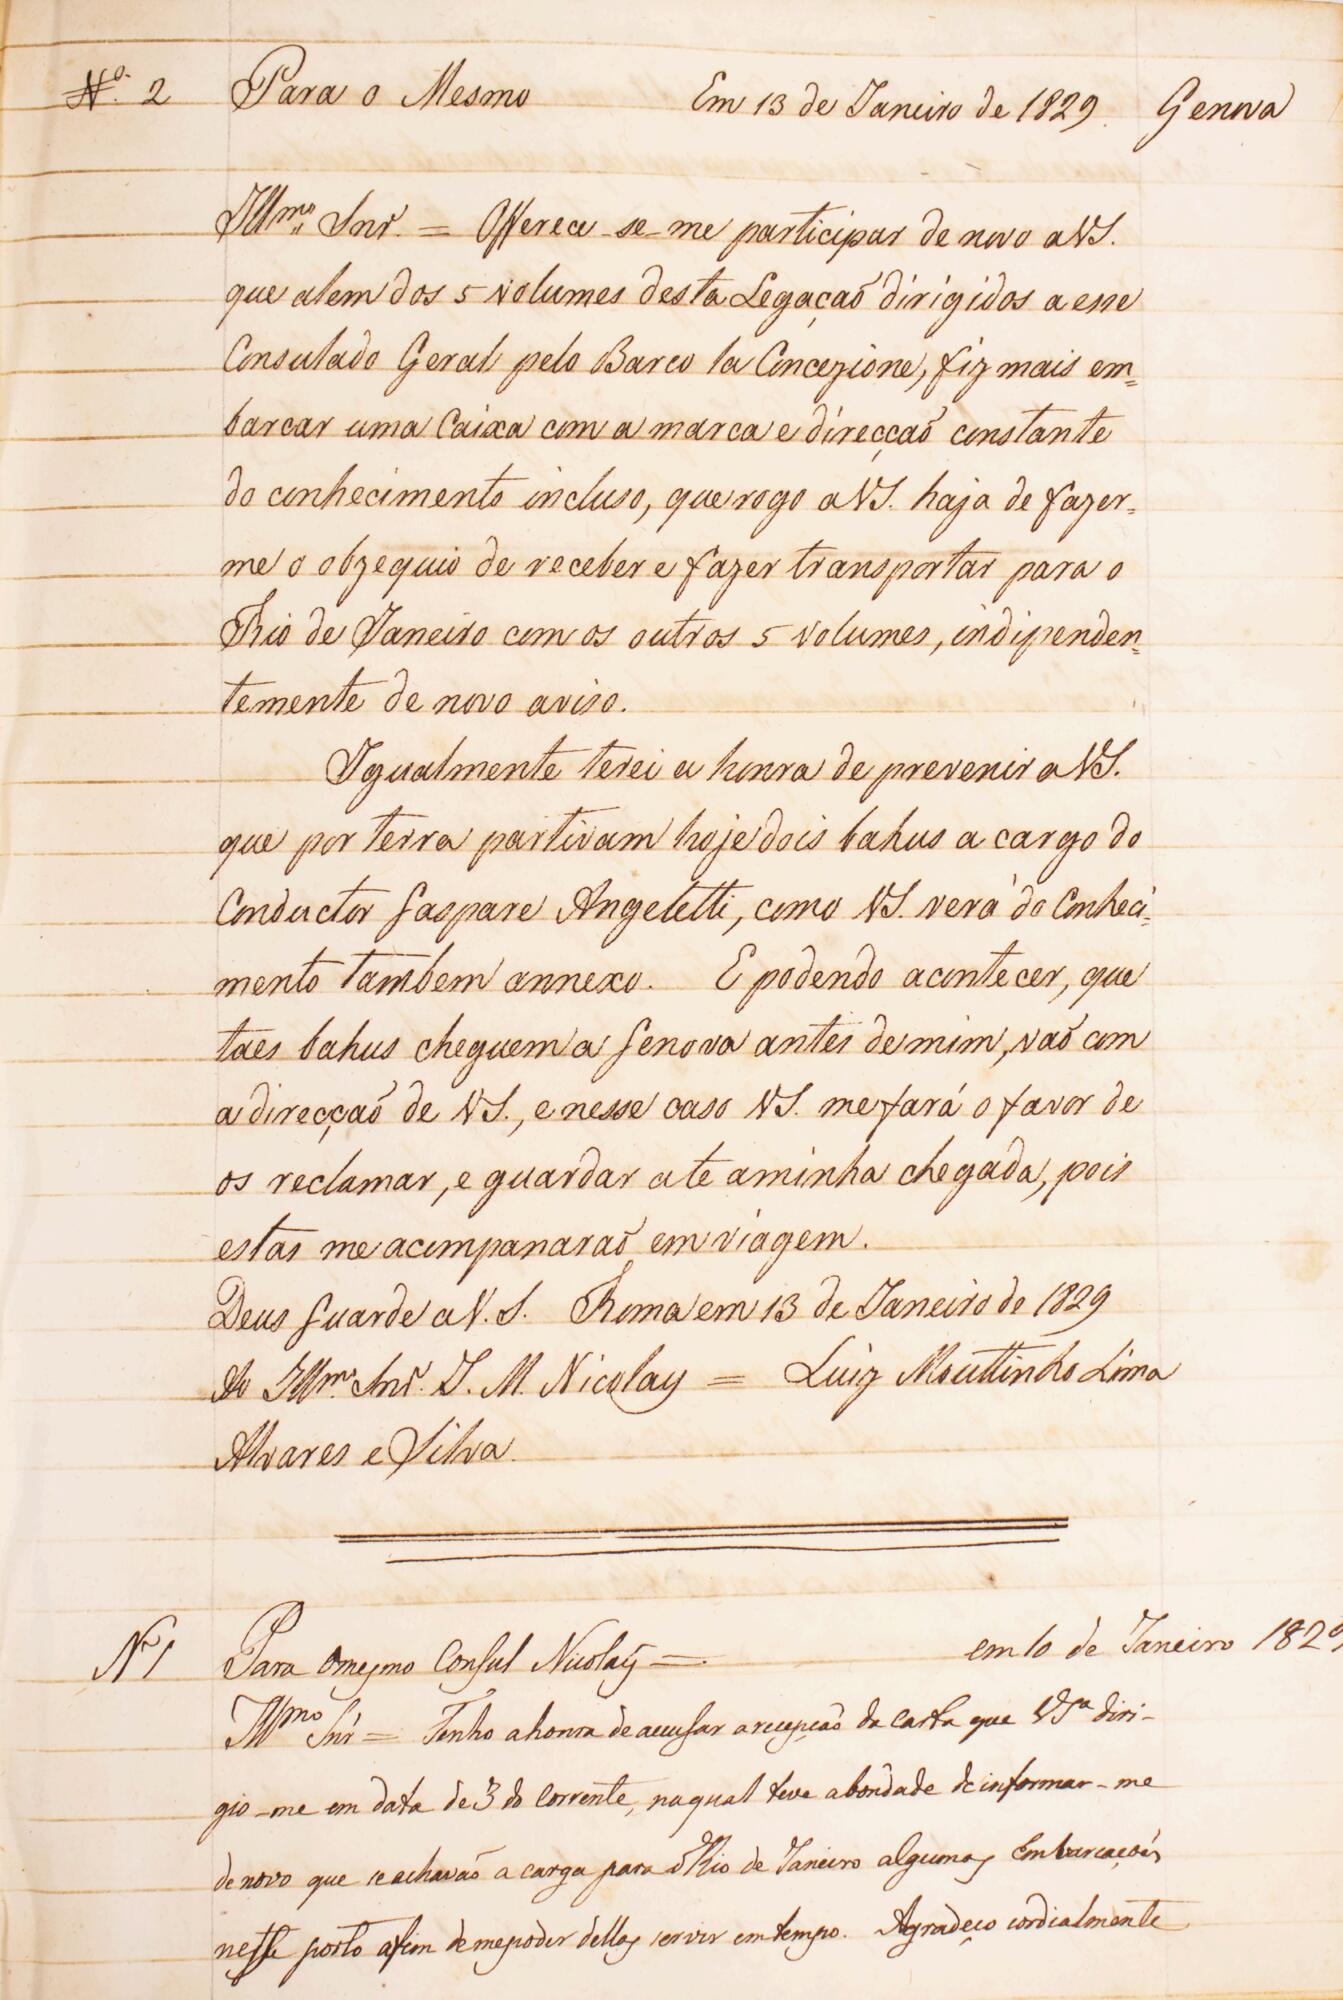 Nº. 2 Para o Mesmo Em 13 de Janeiro de 1829. Genova
Illmo. Snr. = Offerece-se-me participar de novo a VS.
que alem dos 5 volumes desta Legaçaõ dirigidos a esse
Consulado Geral pelo Barco la Concezione, fiz mais em=
barcar uma Caixa com a marca e direcçaõ constante
do conhecimento incluso, que rogo a VS. haja de fazer=
me o obzequio de receber e fazer transportar para o
Rio de Janeiro com os outros 5 volumes, indipenden=
temente de novo aviso.
Igualmente terei a honra de prevenir a VS.
que por terra partiram hoje dois bahus a cargo do
Conductor Gaspare Angeletti, como VS. verá do Conheci=
mento tambem annexo. E podendo acontecer, que
taes bahus cheguem a Genova antes de mim, vaõ com
a direcçaõ de VS., e nesse caso VS. me fará o favor de
os reclamar, e guardar ate a minha chegada, pois
estas me acompanaraõ em viagem.
Deus Guarde a V. S. Roma em 13 de Janeiro de 1829
Ao Illmo. Snr. J. M. Nicolay = Luiz Mouttinho Lima
Alvares e Silva.
Nº 1 Para o mesmo Consul Nicolaÿ =. em 10 de Janeiro 1829
Illmo Snr = Tenho a honra de accusar a recepçaõ da carta que VSª diri-
gio-me em data de 3 do Corrente, na qual teve a bondade de informar-me
de novo que se achavaõ a carga para o Rio de Janeiro algumas Embarcações
nesse porto afim de me poder dellas servir em tempo. Agradeço cordialmente